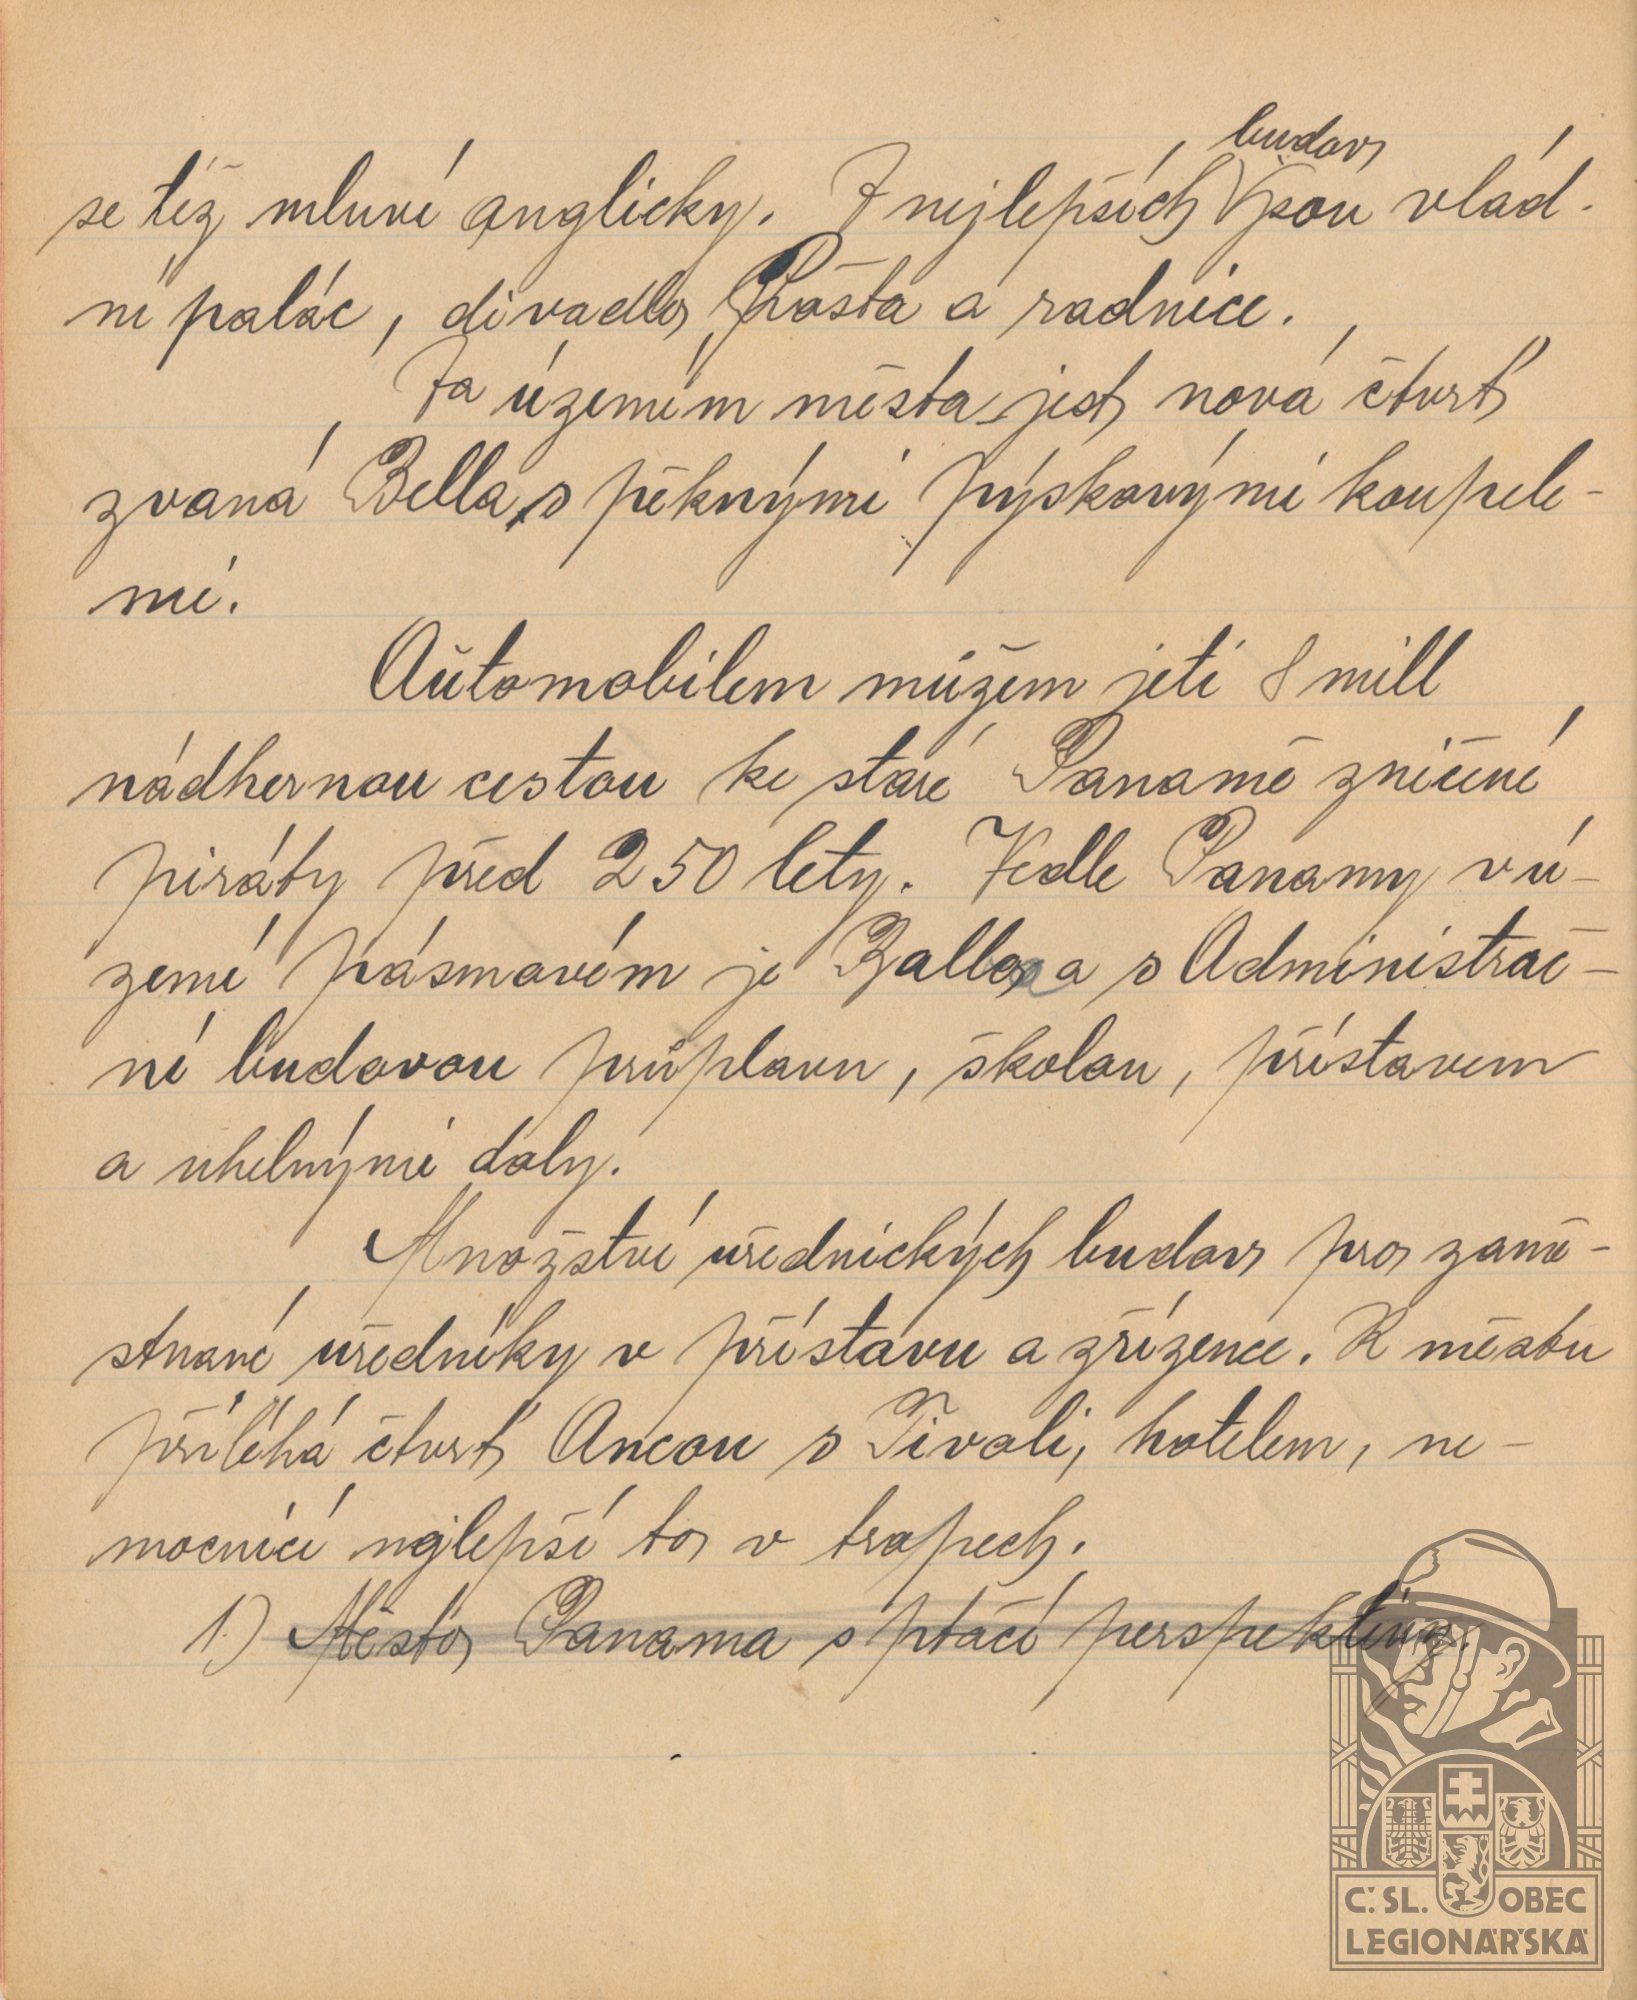 budov
se též mluví anglicky. Z nejlepších jsou vlád-
ní palác, divadlo, Pošta a radnice.
Za územím města jest nová čtvrť
zvaná Bella, s pěknými pýskovými koupele-
mi.
Automobilem můžem jeti 8 mill
nádhernou cestou ke staré Panamě zničené
piráty před 250 lety. Vedle Panamy v ú-
zemí pásmovém je Balboa s Administrač-
ní budovou průplavu, školou, přístavem
a uhelnými doly.
Množství úřednických budov pro zamě-
stnané úředníky v přístavu a zřízence. K městu
přiléhá čtvrť Ancou s Tivoli, hotelem, ne-
mocnicí nejlepší to v tropech.
1.) Město Panama s ptačí perspektivy.
Č. SL. OBEC
LEGIONÁŘSKÁ